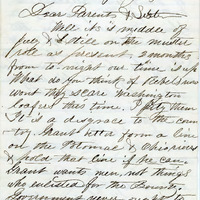 Dear Parents & Sister
Well it is middle of
July & Still on the muster
role as present. 2 months
from to night our time is up
What do you think of Rebels now
wont they scare Washington
loafers this time. I pity them
It is a disgrace to the coun
try. Grant better form a line
on the Potomac & Ohio rivers
& hold that line if he can.
Grant wants men, not things
who enlisted for the Bounty.
Government never ought to